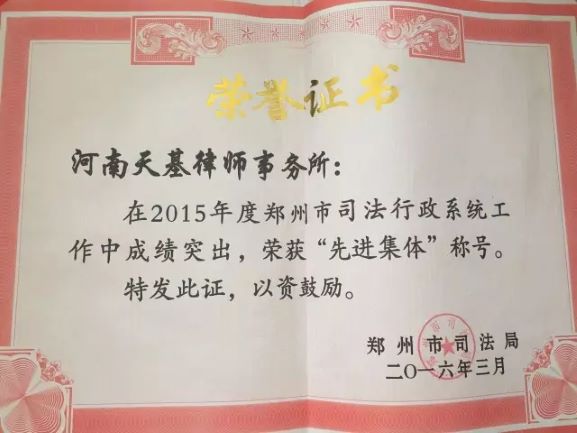 荣誉证书
河南天基律师事务所：
在2015年度郑州市司法行政系统工
作中成绩突出，荣获“先进集体”称号。
特发此证，以资鼓励。
郑州市司法局
二〇一六年三月